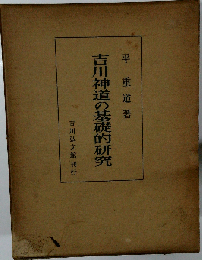 平重道著
吉川神道の基礎的研究
吉川弘文館刊行